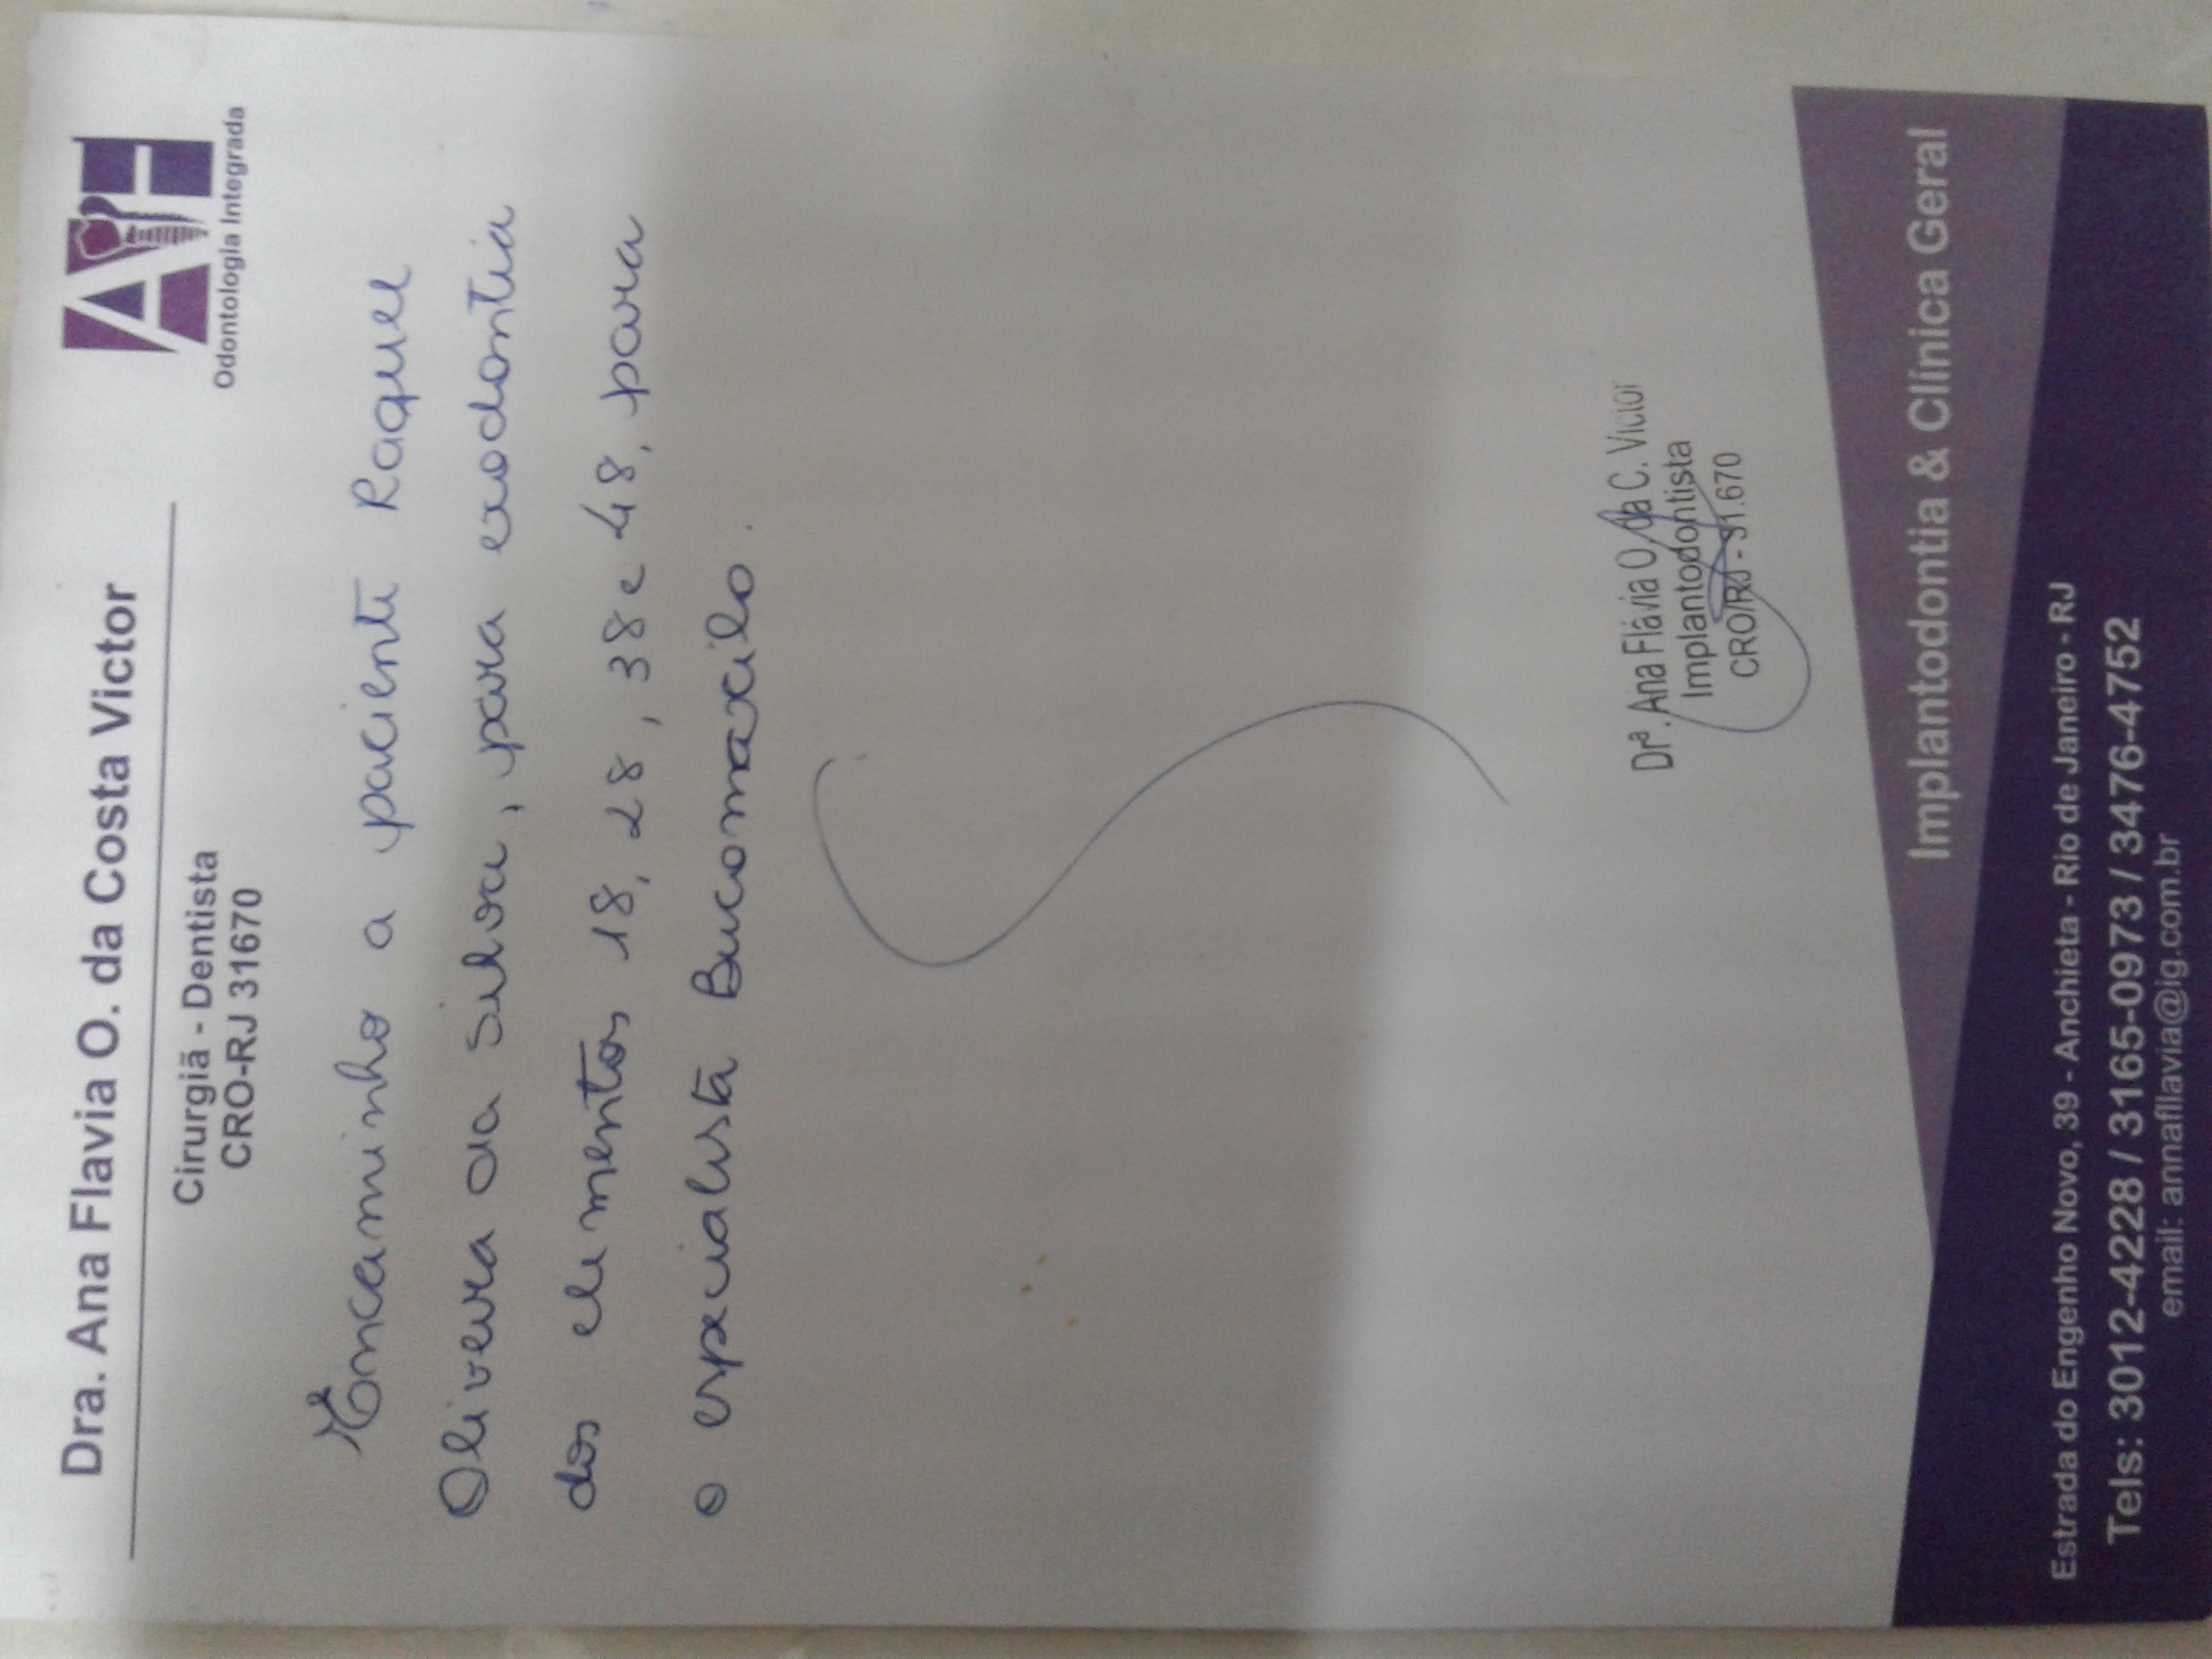 Dra. Ana Flavia O. da Costa Victor
Cirurgiã - Dentista
CRO-RJ 31670
AF
Odontologia Integrada
Encaminho a paciente Raquel
Oliveira da Silva, para exodontia
dos elementos 18, 28, 38 e 48, para
o especialista Bucomaxilo.
Drª. Ana Flávia O. da C. Victor
Implantodontista
CRO/RJ - 31.670
Implantodontia & Clínica Geral
Estrada do Engenho Novo, 39 - Anchieta - Rio de Janeiro - RJ
Tels: 3012-4228 / 3165-0973 / 3476-4752
email: annafllavia@ig.com.br